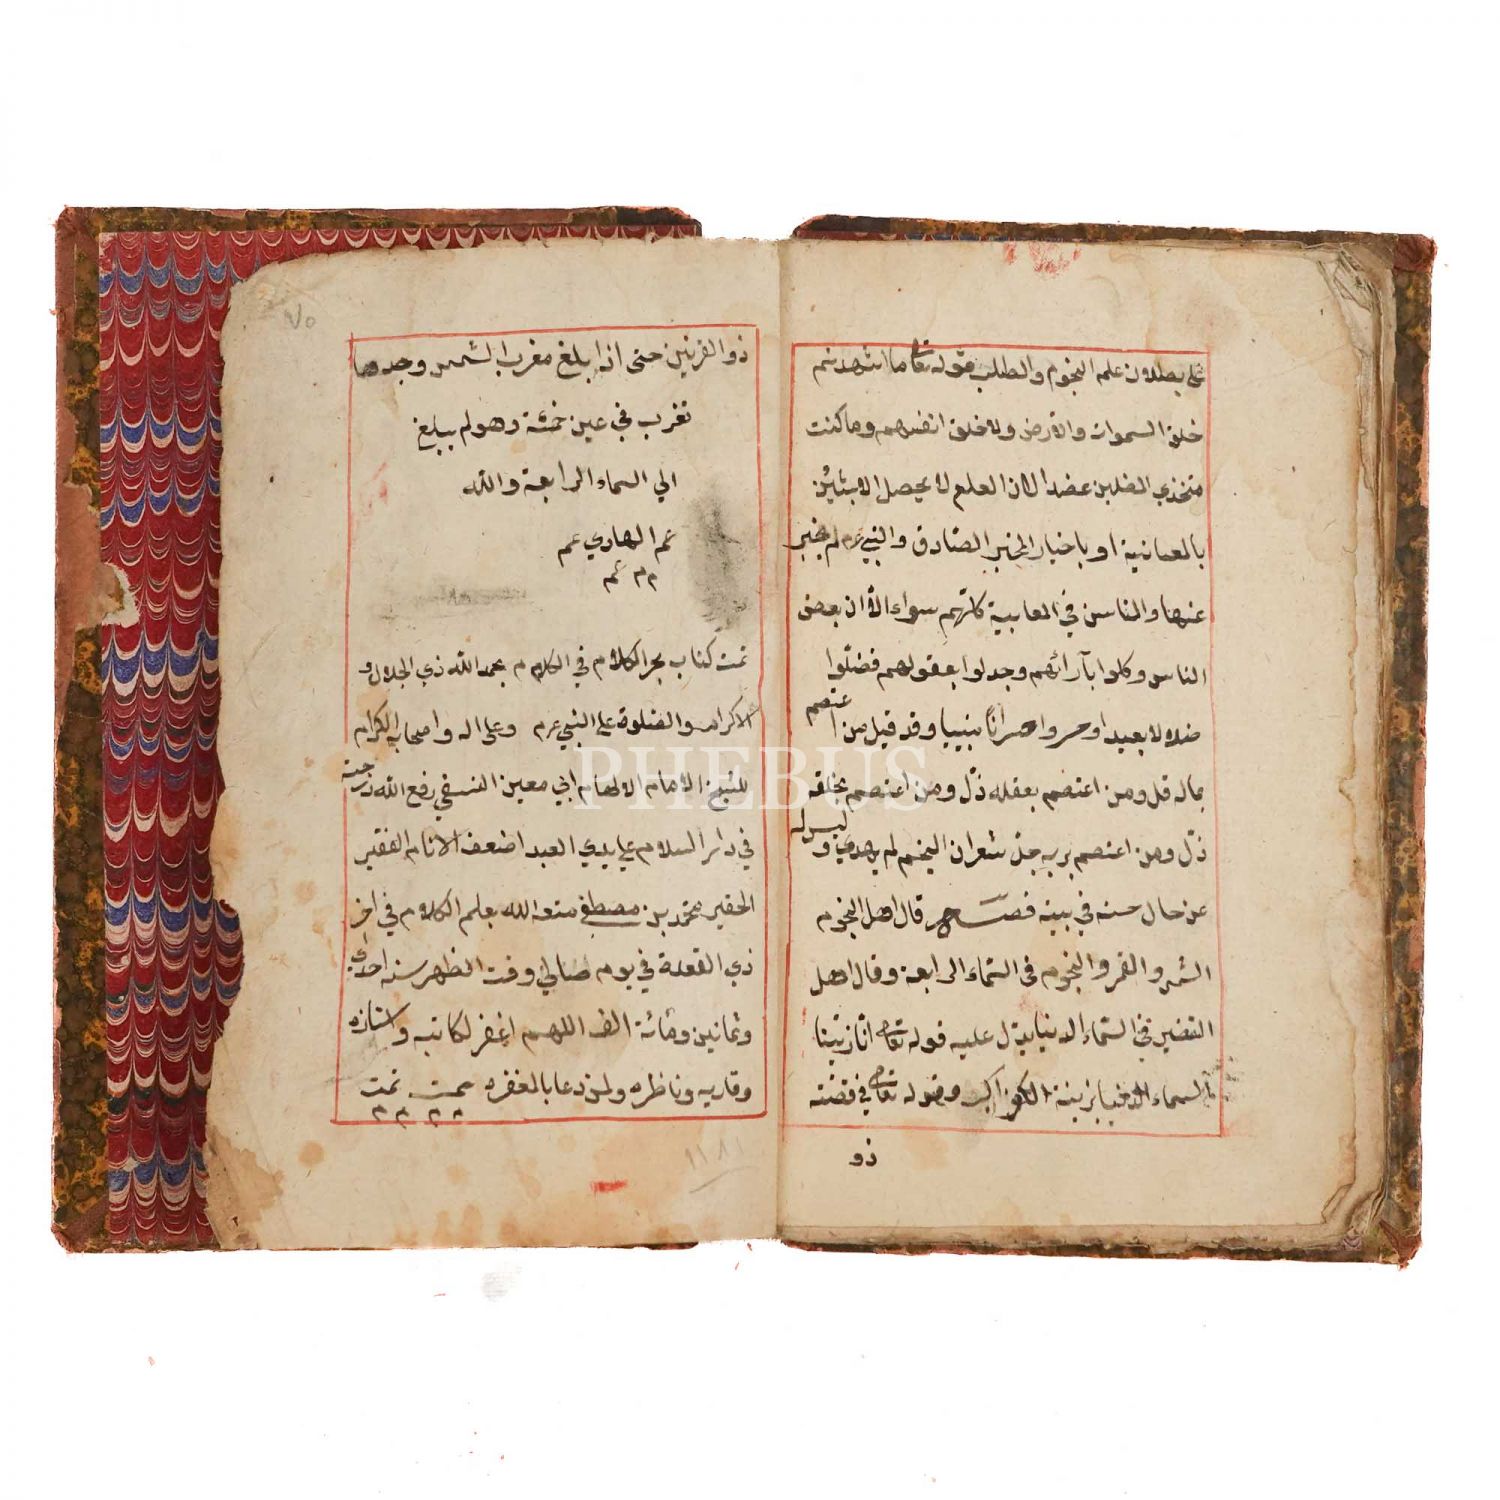 على بطلان علم النجوم والطلب قوله تعا ما اشهدتهم
خلق السموات والارض ولا خلق انفسهم وما كنت
متخذي المضلين عضدا لان العلم لا يحصل الا بشيئين
بالمعاينة او باخبار المخبر الصادق والنبي عرم لم يخبر
عنها والناس في المعاينة كلهم سواء الا ان بعض
الناس وكلوا بآرائهم وجدلوا بعقولهم فضلّوا
ضلالا بعيدا وخسروا خسرانا مبينا وقد قيل من اعتصم
بماله قل ومن اعتصم بعقله ذلّ ومن اعتصم بخلقه
ذلّ ومن اعتصم بربه جلّ المنجم لم يهدي وليس له
عن حال حسنه في بيته فصــــل قال اهل النجوم
الشمس والقمر والنجوم فى السّماء الرابعة وقال اهل
التفسير في السّماء الدنيا يدل عليه قوله تعا انّا زيّنا
السماء الدنيا بزينة الكواكب وقوله تعا في قصّته
ذو
٧٥
ذو القرنين حتى اذا بلغ مغرب الشمس وجدها
تغرب في عين حمئة وهو لم يبلغ
الي السماء الرابعة والله
عم الهادي عم
عم
تمت كتاب بحر الكلام في الكلام بحمد الله ذي الجلال و
الاكرام والصلوة على النبي عرم وعلى اله واصحابه الكرام
للشيخ الامام الالهام ابي معين النسفي رفع الله درجته
في دار السلام على يدي العبد اضعف الانام الفقير
الحقير محمد بن مصطفى متعه الله بعلم الكلام في اخر
ذي القعدة في يوم صالي وقت الظهر سنه احدى
وثمانين ومائة الف اللهم اغفر لكاتبه واستاذه
وقاريه وناظره ولمن دعا بالمغفره تمت تمت
١١٨١
PHEBUS